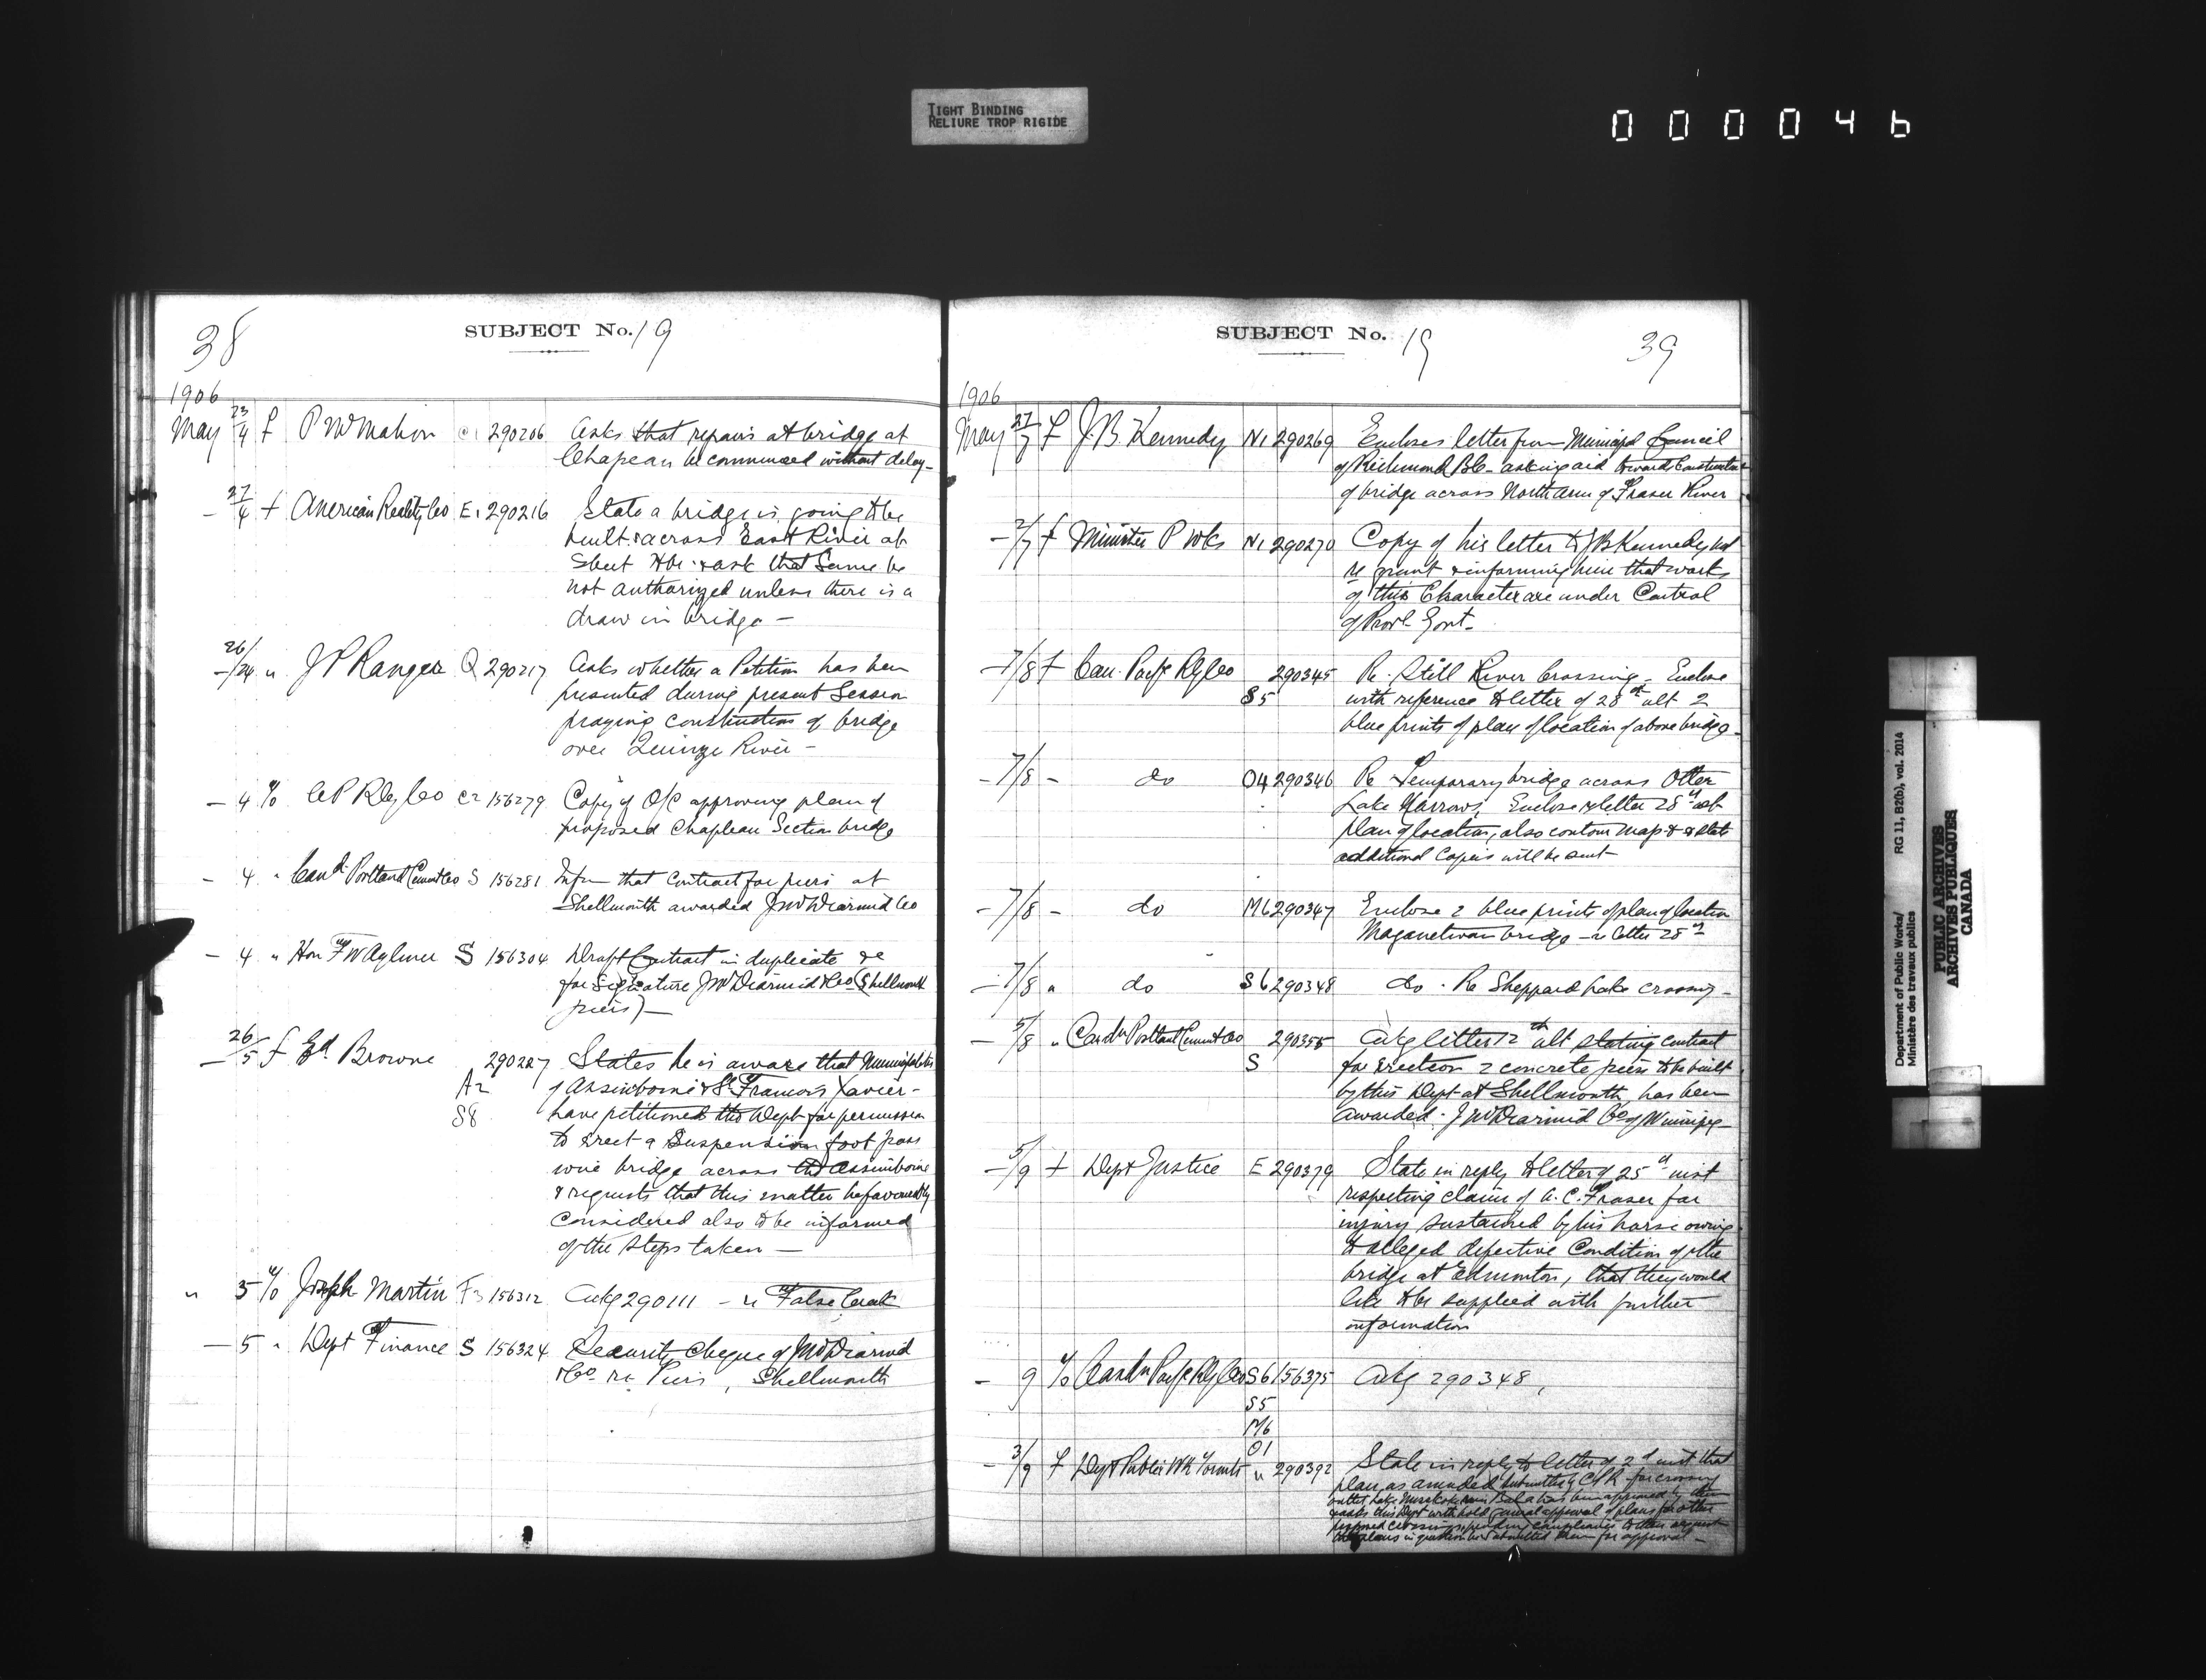 TIGHT BINDING
RELIURE TROP RIGIDE
000046
38
SUBJECT No. 19
1906
May 23/4 f P McMahon C1 290206 Asks that repairs at bridge at
Chapeau be commenced without delay -
- 27/4 f American Realty Co E1 290216 State a bridge is going to be
built across East River at
Sheet Hbr. & ask that same be
not authorized unless there is a
draw in bridge -
- 26/24 " J P Ranger Q 290217 Asks whether a Petition has been
presented during present Session
praying construction of bridge
over Quinze River -
- 4 % CP Rly Co C2 156279 Copy of O/C approving plan of
proposed Chapleau Section bridge
- 4 " Cand. Portland Cement Co S 156281 Infm that contract for piers at
Shellmouth awarded J McDiarmid Co
- 4 " Hon F W Aylmer S 156304 Draft Contract in duplicate &c
for signature J McDiarmid & Co (Shellmouth
piers) -
- 26/5 f Ed Browne 290227 States he is aware that Municipalities
A2 of Assiniboine & St. Francois Xavier -
S8 have petitioned the Dept for permission
to erect a Suspension foot pass
wire bridge across the Assiniboine
& requests that this matter be favourably
considered also to be informed
of the steps taken -
" 5 % Joseph Martin F3 156312 Ackg 290111 - re False Creek
- 5 " Dept Finance S 156324 Security cheque of J McDiarmid
& Co. re Piers, Shellmouth
SUBJECT No. 19
39
1906
May 27/7 f J.B. Kennedy N1 290269 Encloses letter from Municipal Council
of Richmond B.C. asking aid towards construction
of bridge across North Arm of Fraser River
- 2/7 f Minister P Wks N1 290270 Copy of his letter to J B Kennedy
re grant & informing him that works
of this Character are under Control
of Provl. Govt.
- 7/8 f Can. Pacfc Rly Co 290345 Re. Still River Crossing - Enclose
S5 with reference to letter of 28th ult 2
blue prints of plan of location of above bridge -
- 7/8 - do O4 290346 Re Temporary bridge across Otter
Lake Narrows, Enclose letter 28th ult
plan of location, also contour map & state
additional copies will be sent
- 7/8 - do M6 290347 Enclose 2 blue prints of plan of location
Maganetwan bridge - re letter 28th
- 7/8 " do S6 290348 do. Re Sheppard Lake crossing -
- 5/8 " Candn Portland Cement Co 290355 Ackg letter 12th ult stating contract
S for erection 2 concrete piers to be built
by this Dept at Shellmouth, has been
awarded J McDiarmid Co of Winnipeg -
- 5/9 f Dept Justice E 290379 State in reply to letter of 25th inst
respecting claim of A.C. Fraser for
injury sustained by his horse owing
to alleged defective Condition of the
bridge at Edmonton, that they would
like to be supplied with further
information
- 9 % Candn Pacfc Rly Co S6 156375 Ackg 290348,
S5
M6
O1
- 3/9 f Dept Public Wk Toronto " 290392 State in reply to letter of 2d inst that
plan as amended submitted by CPR for crossing
outlet Lake Muskoka near Bala has been approved by them
&asks this Dept withhold general approval of plans for other
proposed crossings pending compliance to their request
plans in question be submitted them for approval -
Department of Public Works/
Ministère des travaux publics
RG 11, B2(b), vol. 2014
PUBLIC ARCHIVES
ARCHIVES PUBLIQUES
CANADA